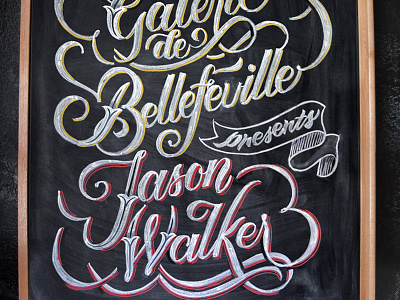 Galerie
de
Bellefeville
presents
Jason
Walker